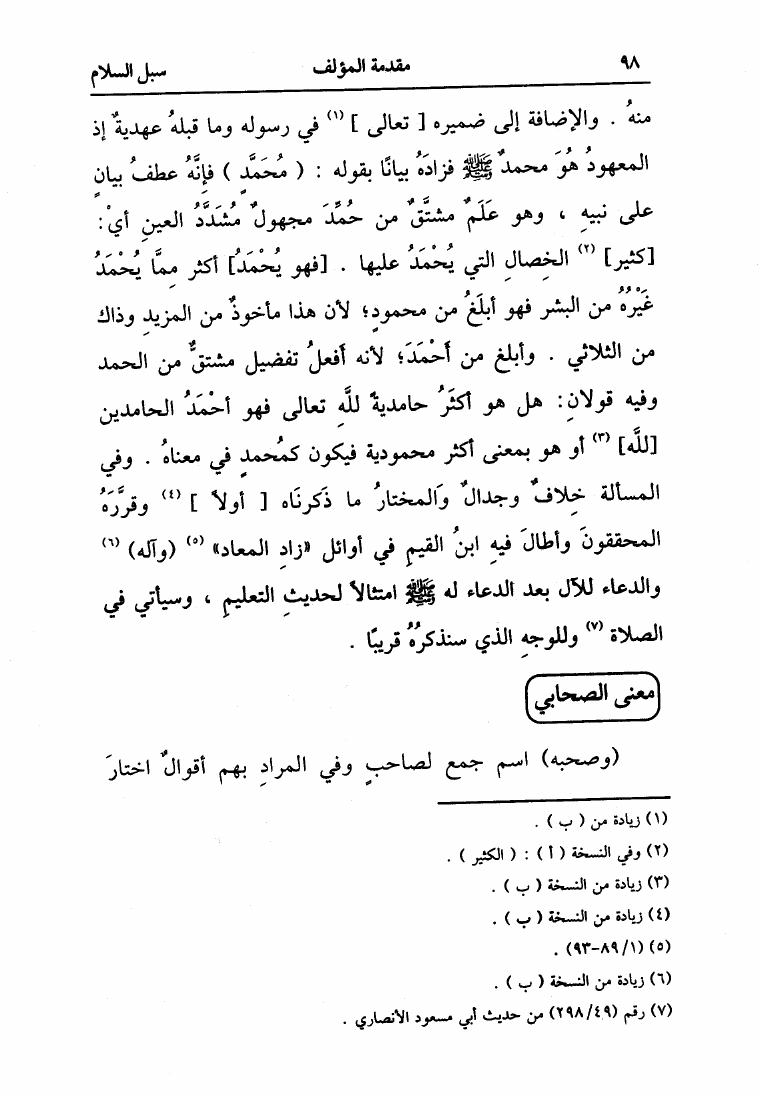 ٩٨ مقدمة المؤلف سبل السلام
منهُ . والإضافة إلى ضميره [ تعالى ] (١) في رسوله وما قبلهُ عهديةٌ إذ
المعهودُ هُوَ محمدٌ ﷺ فزادَهُ بيانًا بقوله : ( مُحَمَّدٍ ) فإنَّهُ عطفُ بيانٍ
على نبيهِ ، وهو عَلَم مشتَّق من حُمِّدَ مجهولٌ مُشَدَّدُ العينِ أيْ:
[كثير] (٢) الخِصالِ التي يُحْمَدُ عليها . [فهو يُحْمَدُ] أكثر ممَّا يُحْمَدُ
غَيْرُهُ من البشر فهو أبلَغُ من محمودٍ؛ لأن هذا مأخوذٌ من المزيدِ وذاك
من الثلاثي . وأبلغ من أَحْمَدَ؛ لأنه أفعلُ تفضيل مشتقٌّ من الحمد
وفيه قولانِ: هل هو أكثَرُ حامديةً للَّهِ تعالى فهو أحْمَدُ الحامدين
[للَّهِ] (٣) أو هو بمعنى أكثر محمودية فيكون كمُحمدٍ في معناهُ . وفي
المسألة خِلافٌ وجدالٌ وَالمختارُ ما ذَكرنَاه [ أولاً ] (٤) وقرَّرَهُ
المحققونَ وأطالَ فيهِ ابنُ القيمِ في أوائل «زادِ المعاد» (٥) (وآله) (٦)
والدعاء للآل بعد الدعاء له ﷺ امتثالاً لحديثِ التعليمِ ، وسيأتي في
الصلاة (٧) وللوجهِ الذي سنذكرُهُ قريبًا .
معنى الصحابي
(وصحبه) اسم جمع لصاحبٍ وفي المرادِ بهم أقوالٌ اختارَ
(١) زيادة من ( ب ) .
(٢) وفي النسخة ( أ ) : ( الكثير ) .
(٣) زيادة من النسخة ( ب ) .
(٤) زيادة من النسخة ( ب ) .
(٥) (١/ ٨٩-٩٣) .
(٦) زيادة من النسخة ( ب ) .
(٧) رقم (٤٩/ ٢٩٨) من حديث أبي مسعود الأنصاري .